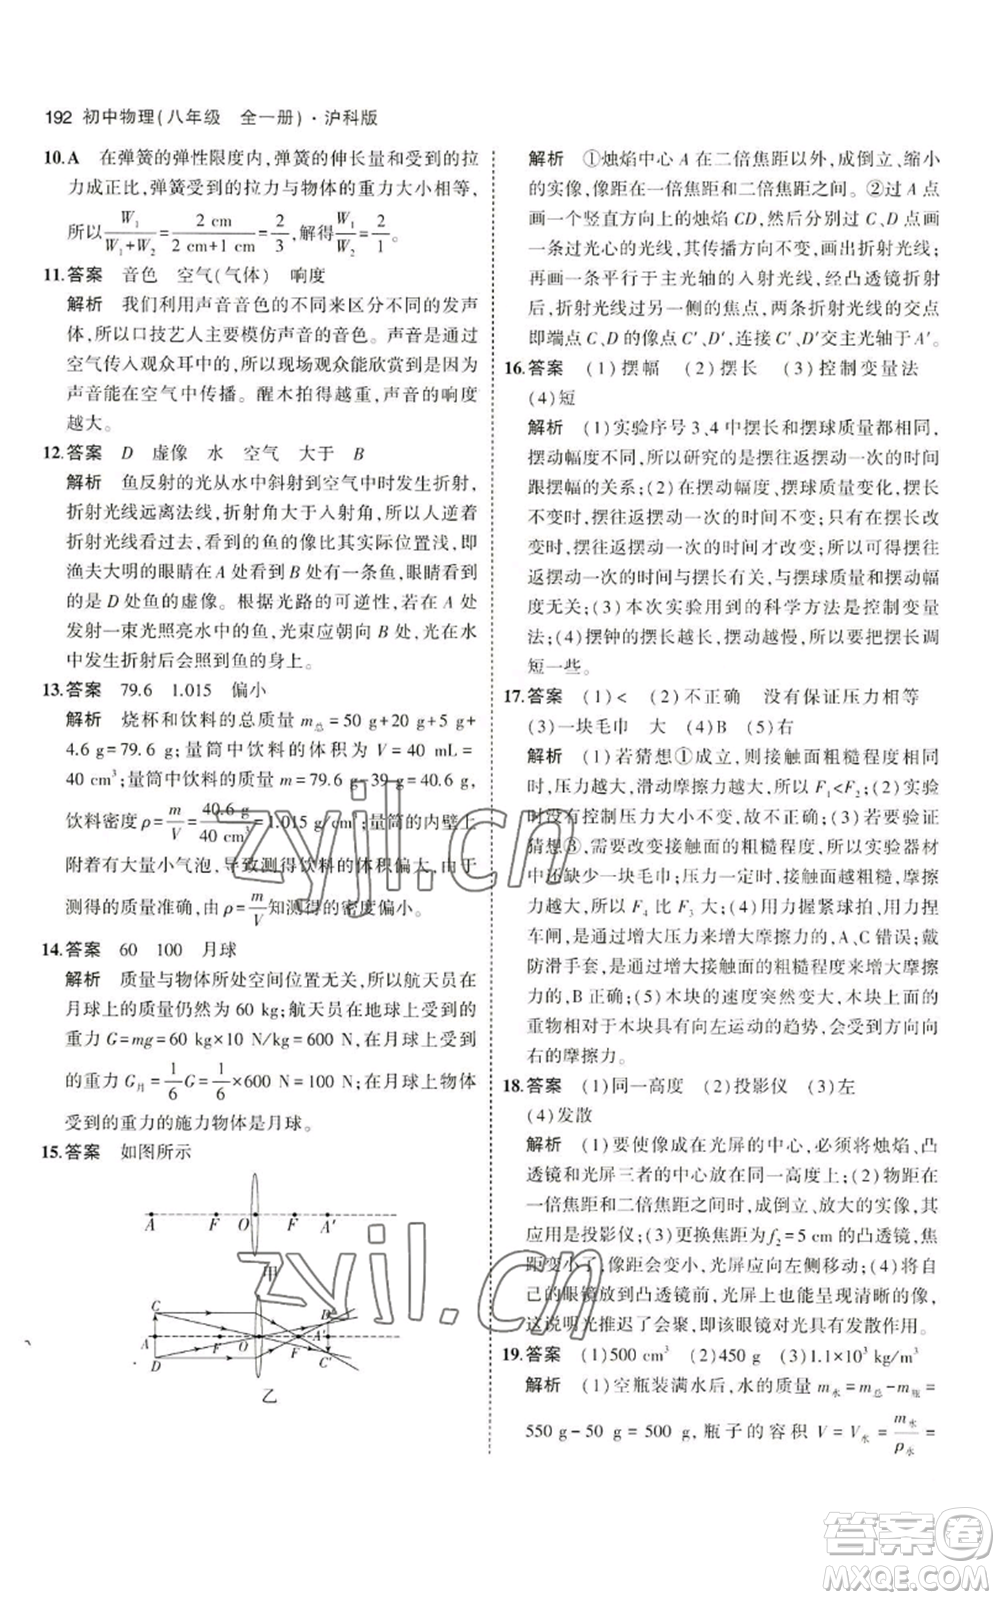 192 初中物理(八年级　全一册)·沪科版
10.A　在弹簧的弹性限度内,弹簧的伸长量和受到的拉
力成正比,弹簧受到的拉力与物体的重力大小相等,
所以W₁/(W₁+W₂)=2 cm/(2 cm+1 cm)=2/3,解得W₁/W₂=2/1。
11.答案　音色　空气(气体)　响度
解析　我们利用声音音色的不同来区分不同的发声
体,所以口技艺人主要模仿声音的音色。声音是通过
空气传入观众耳中的,所以观众能欣赏到是因为
声音能在空气中传播。醒木拍得越重,声音的响度
越大。
12.答案　D　虚像　水　空气　大于　B
解析　鱼反射的光从水中斜射到空气中时发生折射,
折射光线远离法线,折射角大于入射角,所以人逆着
折射光线看过去,看到的鱼的像比其实际位置浅,即
渔夫大明的眼睛在A处看到B处有一条鱼,眼睛看到
的是D处鱼的虚像。根据光路的可逆性,若在A处
发射一束光照亮水中的鱼,光束应朝向B处,光在水
中发生折射后会照到鱼的身上。
13.答案　79.6　1.015　偏小
解析　烧杯和饮料的总质量m总=50 g+20 g+5 g+
4.6 g=79.6 g;量筒中饮料的体积为V=40 mL=
40 cm³;量筒中饮料的质量m=79.6 g-39 g=40.6 g,
饮料密度ρ=m/V=40.6 g/40 cm³=1.015 g/cm³;量筒的内壁上
附着有大量小气泡,导致测得饮料的体积偏大,由于
测得的质量准确,由ρ=m/V知测得的密度偏小。
14.答案　60　100　月球
解析　质量与物体所处空间位置无关,所以航天员在
月球上的质量仍然为60 kg;航天员在地球上受到的
重力G=mg=60 kg×10 N/kg=600 N,在月球上受到
的重力G月=1/6G=1/6×600 N=100 N;在月球上物体
受到的重力的施力物体是月球。
15.答案　如图所示
A　F　O　F　A′
甲
C　D′
A　F　O　F　A′
D　C′
乙
解析　①烛焰中心A在二倍焦距以外,成倒立、缩小
的实像,像距在一倍焦距和二倍焦距之间。②过A点
画一个竖直方向上的烛焰CD,然后分别过C、D点画
一条过光心的光线,其传播方向不变,画出折射光线;
再画一条平行于主光轴的入射光线,经凸透镜折射
后,折射光线过另一侧的焦点,两条折射光线的交点
即端点C、D的像点C′、D′,连接C′D′交主光轴于A′。
16.答案　(1)摆幅　(2)摆长　(3)控制变量法
(4)短
解析　(1)实验序号3、4中摆长和摆球质量都相同,
摆动幅度不同,所以研究的是摆往返摆动一次的时间
跟摆幅的关系;(2)在摆动幅度、摆球质量变化,摆长
不变时,摆往返摆动一次的时间不变;只有在摆长改
变时,摆往返摆动一次的时间才改变;所以可得摆往
返摆动一次的时间与摆长有关,与摆球质量和摆动幅
度无关;(3)本次实验用到的科学方法是控制变量
法;(4)摆钟的摆长越长,摆动越慢,所以要把摆长调
短一些。
17.答案　(1)<　(2)不正确　没有保证压力相等
(3)一块毛巾　大　(4)B　(5)右
解析　(1)若猜想①成立,则接触面粗糙程度相同
时,压力越大,滑动摩擦力越大,所以F₁<F₂;(2)实验
时没有控制压力大小不变,故不正确;(3)若要验证
猜想③,需要改变接触面的粗糙程度,所以实验器材
中还缺少一块毛巾;压力一定时,接触面越粗糙,摩擦
力越大,所以F₄比F₃大;(4)用力握紧球拍,用力捏
车闸,都是通过增大压力来增大摩擦力的,A、C错误;戴
防滑手套,是通过增大接触面的粗糙程度来增大摩擦
力的,B正确;(5)木块的速度突然变大,木块上面的
重物相对于木块具有向左运动的趋势,会受到方向向
右的摩擦力。
18.答案　(1)同一高度　(2)投影仪　(3)左
(4)发散
解析　(1)要使像成在光屏的中心,必须将烛焰、凸
透镜和光屏三者的中心放在同一高度上;(2)物距在
一倍焦距和二倍焦距之间时,成倒立、放大的实像,其
应用是投影仪;(3)更换焦距为f₂=5 cm的凸透镜,焦
距变小了,像距会变小,光屏应向左侧移动;(4)将自
己的眼镜放到凸透镜前,光屏上出现了清晰的像,
这说明光推迟了会聚,即该眼镜对光具有发散作用。
19.答案　(1)500 cm³　(2)450 g　(3)1.1×10³ kg/m³
解析　(1)空瓶装满水后,水的质量m水=m总-m瓶=
550 g-50 g=500 g,瓶子的容积V=V水=m水/ρ水=
zyjl.cn
zyjl.cn
答案卷
MXQE.COM